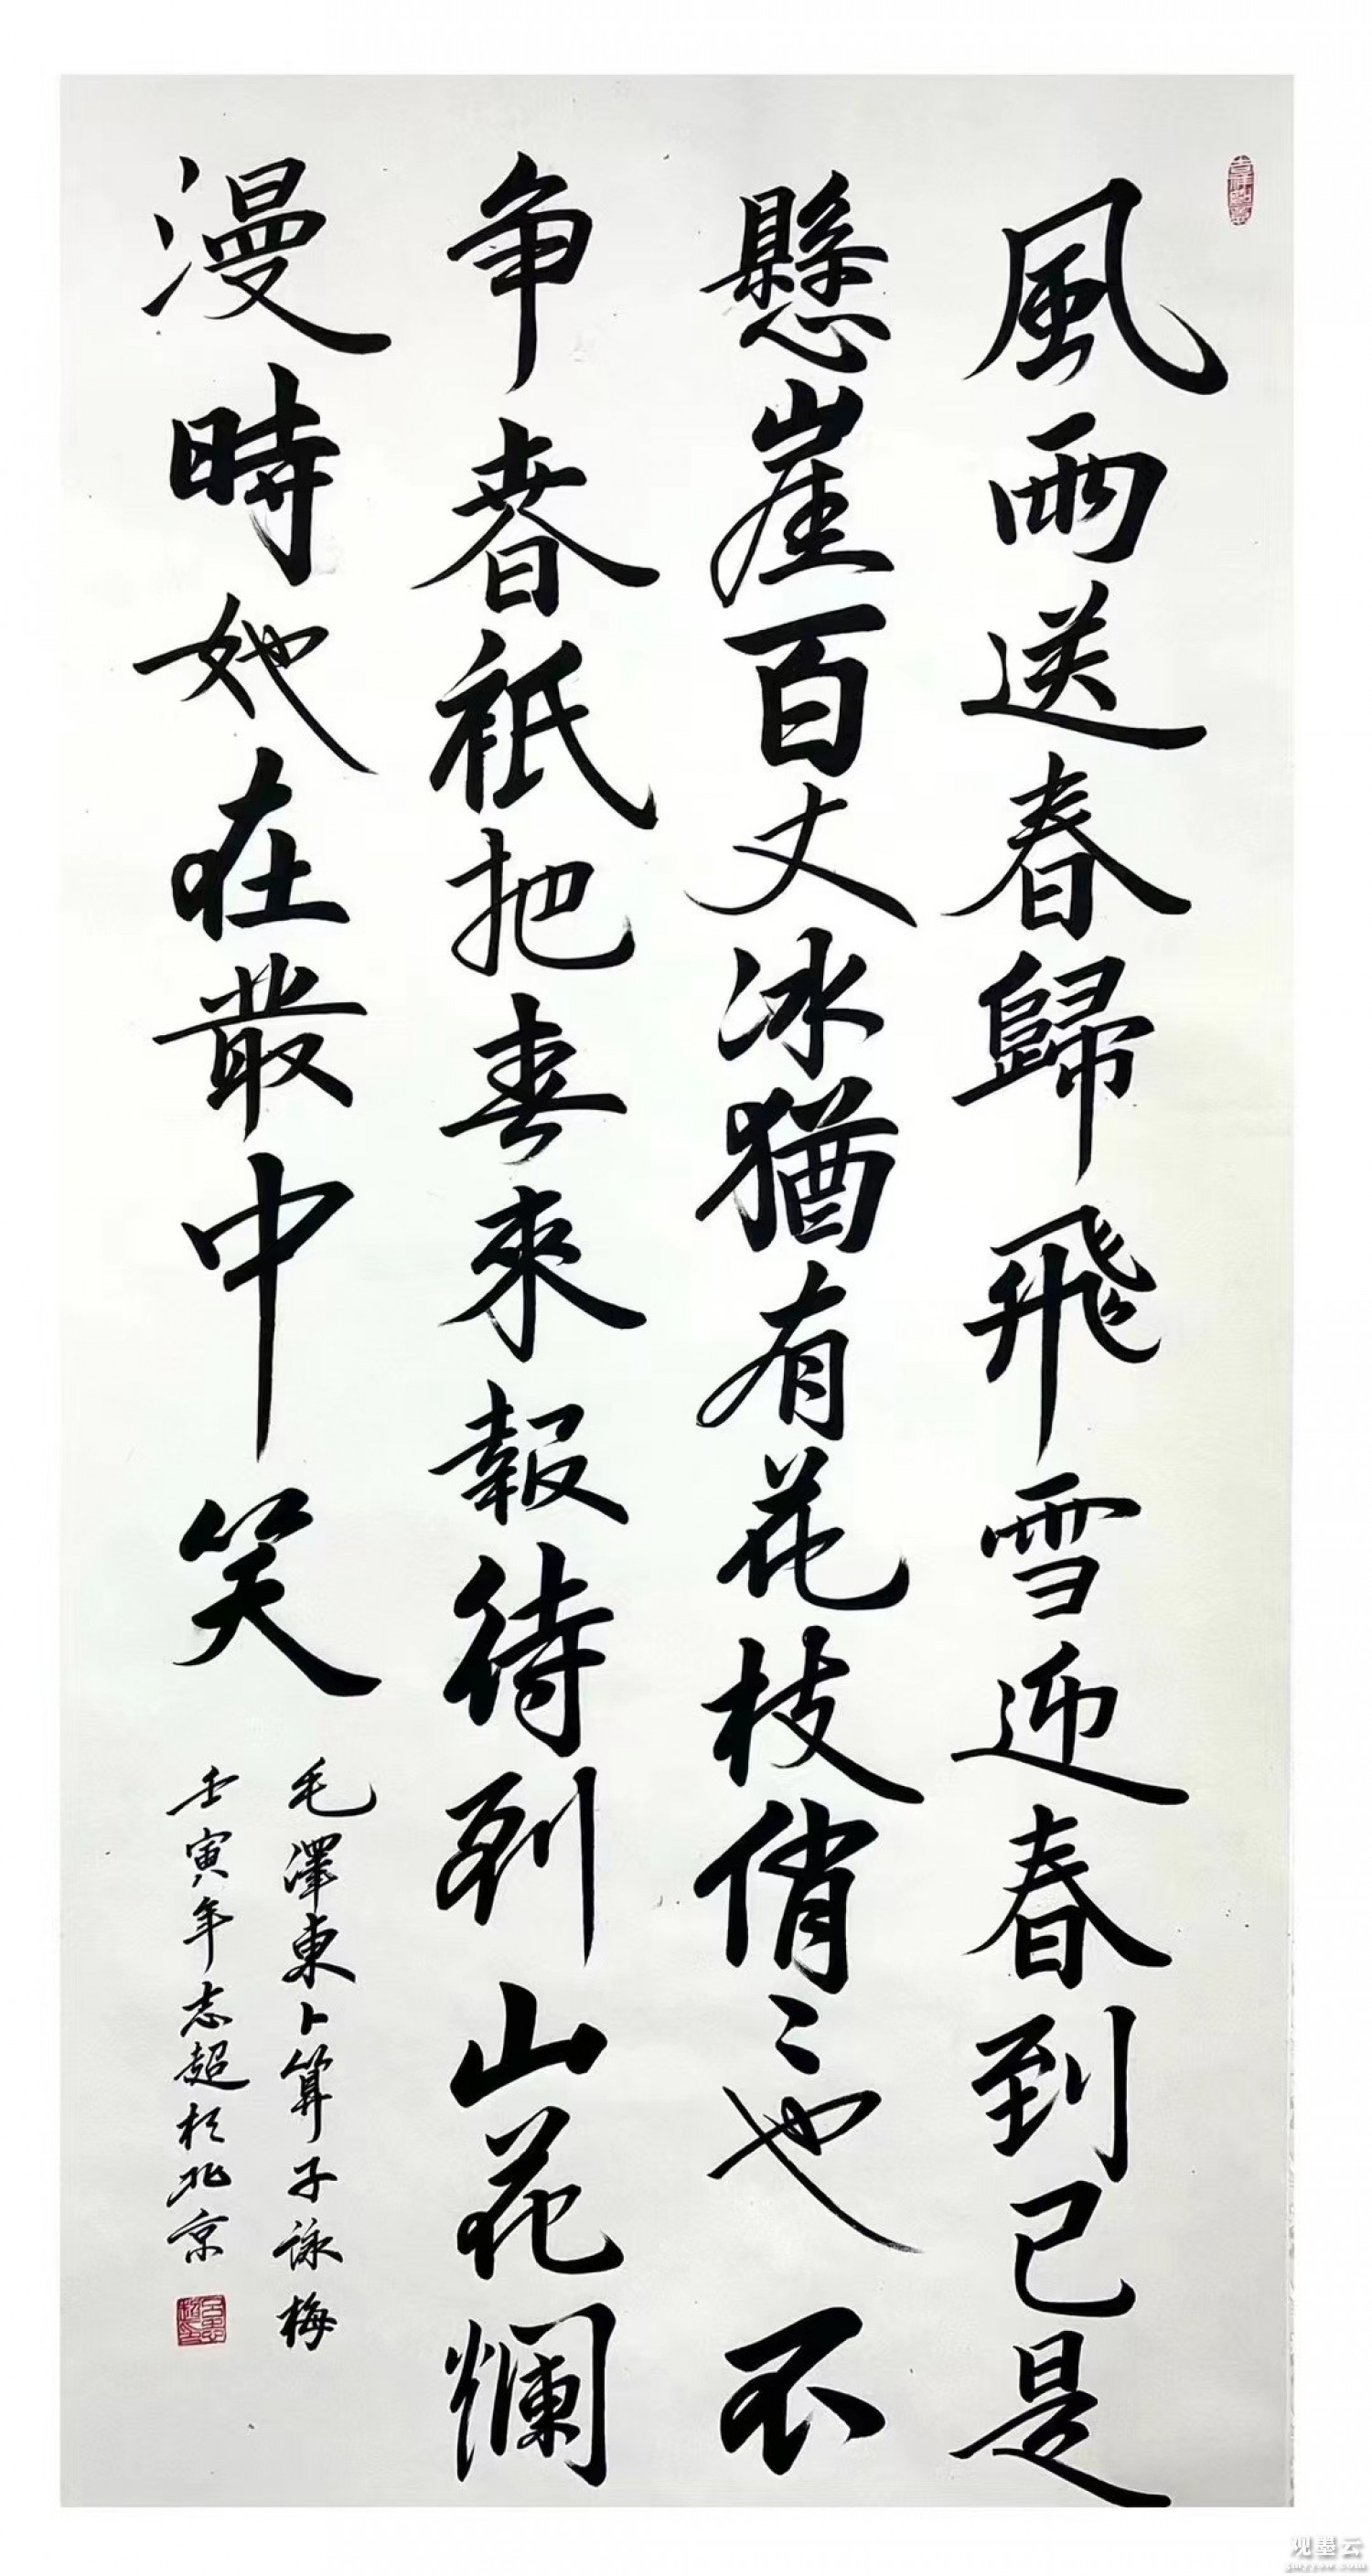 吉祥如意
風雨送春歸飛雪迎春到已是
懸崖百丈冰猶有花枝俏〻也不
争春祇把春來報待到山花爛
漫時她在叢中笑
毛澤東卜算子詠梅
壬寅年志超於北京
观墨云